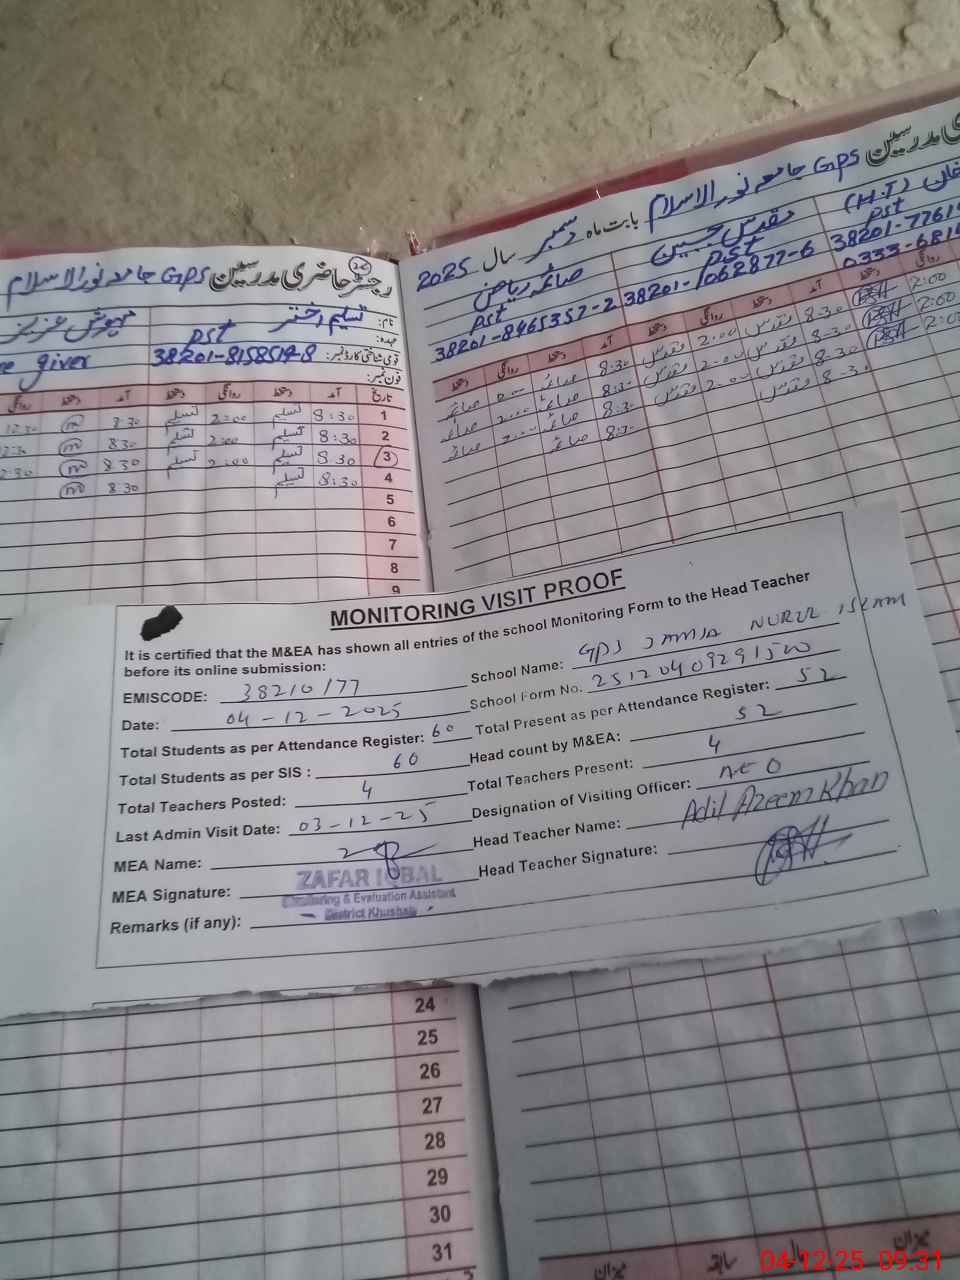 رجسٹر حاضری مدرسین GPS جامعہ نور الاسلام
نام: تسلیم اختر
مہوش عزیز
عہدہ: PST
giver
قومی شناختی کارڈ نمبر: 38201-8158514-8
فون نمبر:
تاریخ آمد دستخط روانگی دستخط آمد دستخط روانگی
1 8:30 تسلیم 2:00 تسلیم 8:30 12:30
2 8:30 تسلیم 2:00 تسلیم 8:30
3 8:30 تسلیم 2:00 تسلیم 8:30
4 8:30 تسلیم 8:30
5
6
7
8
9
مدرسین GPS جامعہ نور الاسلام بابت ماہ دسمبر سال 2025
خان (H.T)
مقدس حسین
صائمہ ریاض
PST
PST
PST
38201-7761
38201-1062877-6
38201-8465357-2
0333-681
روانگی دستخط آمد دستخط روانگی دستخط آمد دستخط روانگی دستخط
2:00 8:30 مقدس 2:00 مقدس 8:30 صائمہ صائمہ
2:00 8:30 مقدس 2:00 مقدس 8:30 صائمہ 2:00 صائمہ
2:00 8:30 مقدس 2:00 مقدس 8:30 صائمہ صائمہ
8:30 مقدس 8:30 صائمہ
MONITORING VISIT PROOF
It is certified that the M&EA has shown all entries of the school Monitoring Form to the Head Teacher
before its online submission:
EMISCODE: 38210177
School Name: GPS JAMIA NURUL ISLAM
Date: 04-12-2025
School Form No. 25120409291500
Total Students as per Attendance Register: 60
Total Present as per Attendance Register: 52
Total Students as per SIS : 60
Head count by M&EA: 52
Total Teachers Posted: 4
Total Teachers Present: 4
Last Admin Visit Date: 03-12-25
Designation of Visiting Officer: AEO
MEA Name:
Head Teacher Name: Adil Azeem Khan
MEA Signature:
Head Teacher Signature:
ZAFAR IQBAL
Monitoring & Evaluation Assistant
District Khushab
Remarks (if any):
24
25
26
27
28
29
30
31
میزان سابقہ میزان
04-12-25 09:31